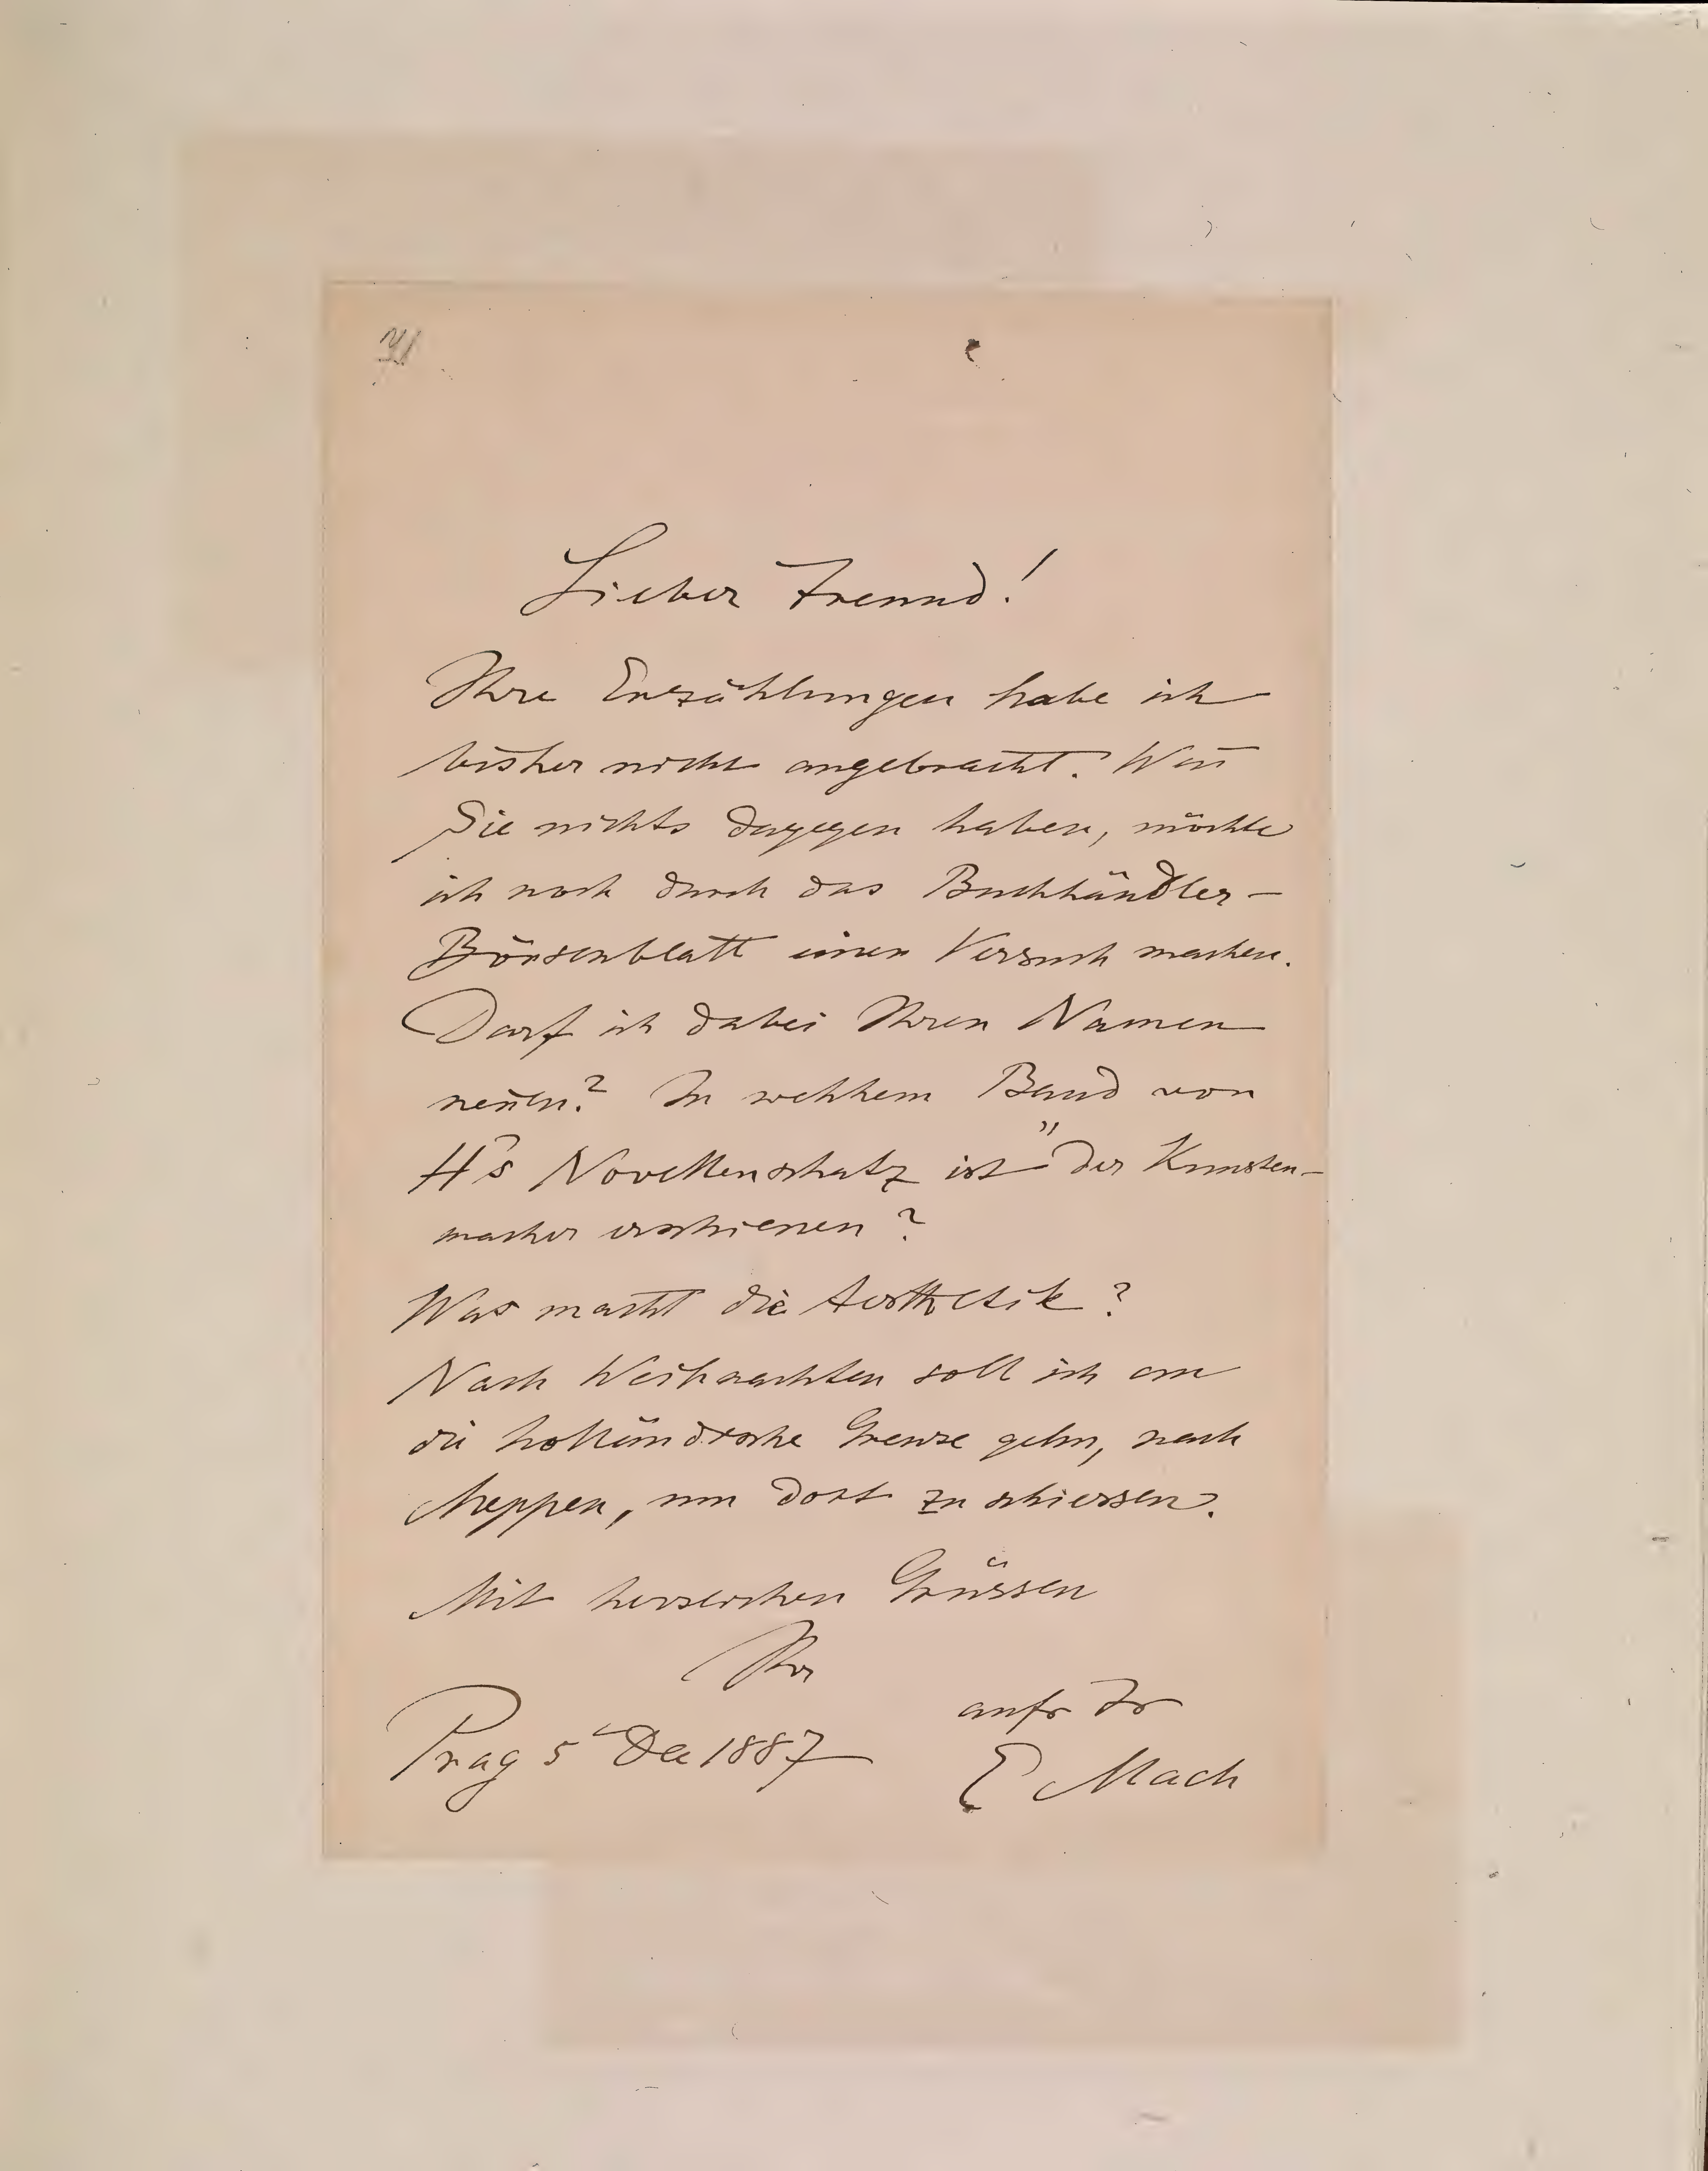 Lieber Freund!
Ihre Erzählungen habe ich
bisher nicht angebracht. Weñ
Sie nichts dagegen haben, möchte
ich noch durch das Buchhändler-
Börsenblatt einen Versuch machen.
Darf ich dabei Ihren Namen
neñen? In welchem Band von
H's Novellenschatz ist "der
macher erschienen?
Was macht die Aesthetik?
Nach Weihnachten soll ich an
die holländische Grenze gehn, nach
Meppen, um dort zu schiessen.
Mit herzlichen Grüssen
Ihr
aufr Fr
Prag 5 Dec 1887
E Mach